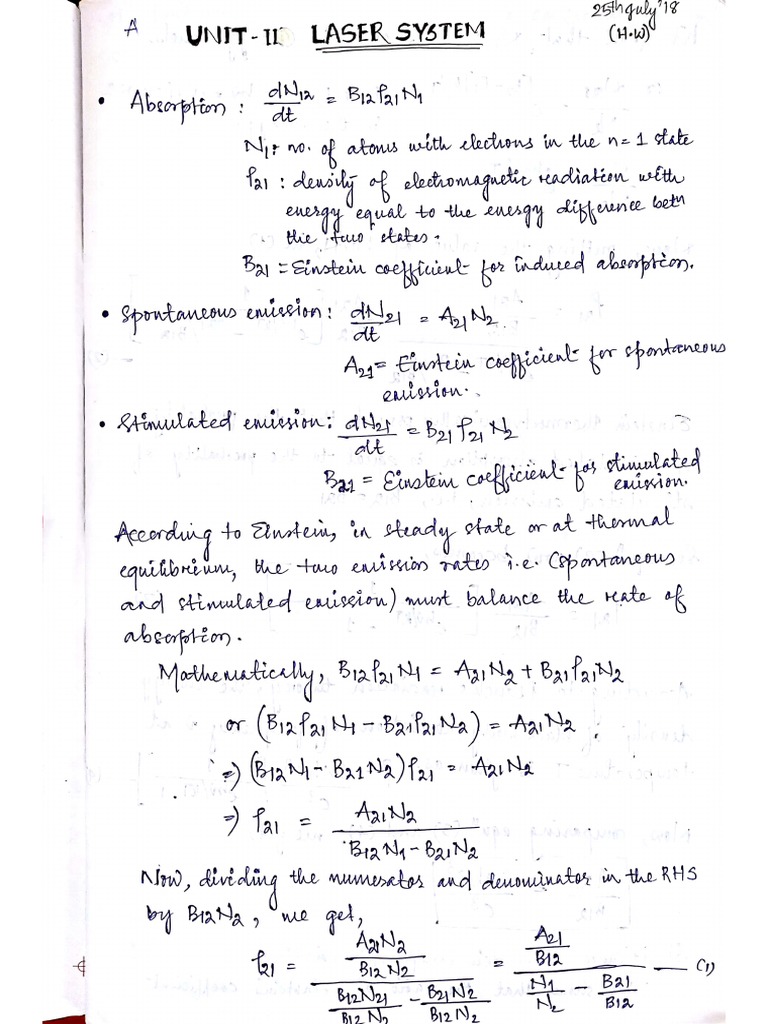 A
25th July '18
(H.W)
UNIT-II LASER SYSTEM
• Absorption : dN12/dt = B12 ρ21 N1
N1 : no. of atoms with electrons in the n=1 state
ρ21 : density of electromagnetic radiation with
energy equal to the energy difference betn
the two states.
B21 = Einstein coefficient for induced absorption.
• Spontaneous emission: dN21/dt = A21 N2
A21 = Einstein coefficient for spontaneous
emission.
• Stimulated emission: dN21/dt = B21 ρ21 N2
B21 = Einstein coefficient for stimulated
emission.
According to Einstein, in steady state or at thermal
equilibrium, the two emission rates i.e. (spontaneous
and stimulated emission) must balance the rate of
absorption.
Mathematically, B12 ρ21 N1 = A21 N2 + B21 ρ21 N2
or (B12 ρ21 N1 − B21 ρ21 N2) = A21 N2
⇒ (B12 N1 − B21 N2) ρ21 = A21 N2
⇒ ρ21 = A21 N2 / B12 N1 − B21 N2
Now, dividing the numerator and denominator in the RHS
by B12 N2, we get,
ρ21 = (A21 N2 / B12 N2) / (B12 N21 / B12 N2 − B21 N2 / B12 N2) = (A21 / B12) / (N1 / N2 − B21 / B12) — (1)